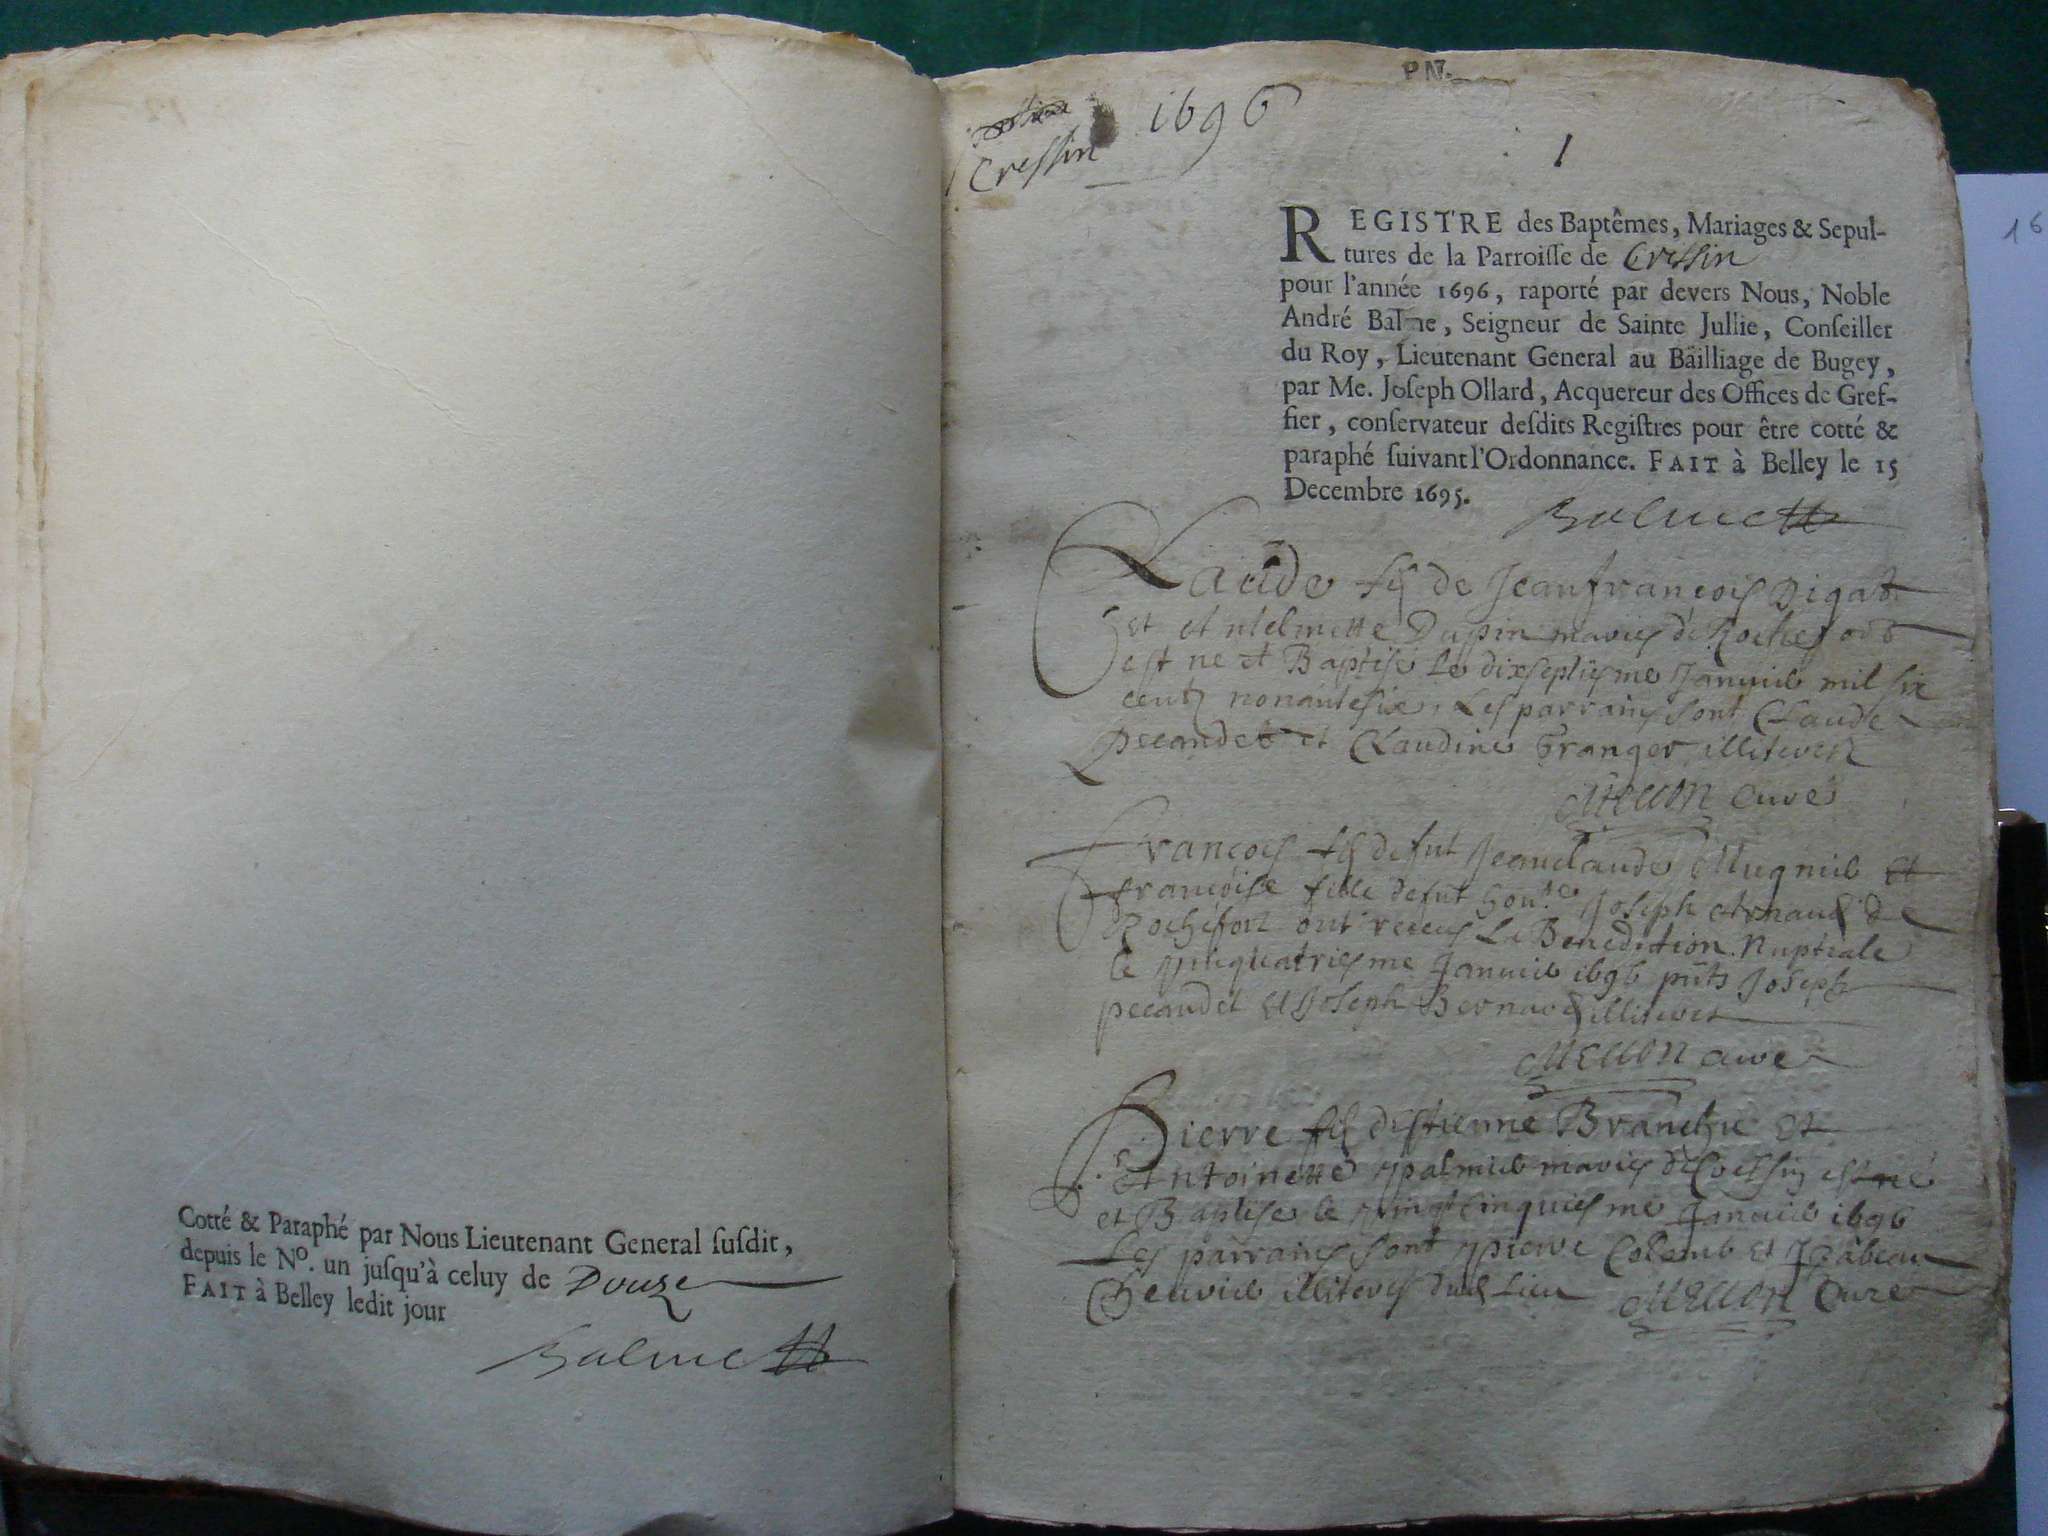 Cotté & Paraphé par Nous Lieutenant General suſdit,
depuis le No. un juſqu'à celuy de Douze
FAIT à Belley ledit jour
Balme
PN.
1696
Cressin
1
REGISTRE des Baptêmes, Mariages & Sepul-
tures de la Parroiſſe de Cressin
pour l'année 1696, raporté par devers Nous, Noble
André Balme, Seigneur de Sainte Jullie, Conſeiller
du Roy, Lieutenant General au Bailliage de Bugey,
par Me. Joſeph Ollard, Acquereur des Offices de Gref-
fier, conſervateur deſdits Regiſtres pour être cotté &
paraphé ſuivant l'Ordonnance. FAIT à Belley le 15
Decembre 1695.
Balme
Claude fils de Jeanfrancois Digat
et Antelmette Dupin maries de Rochefort
est ne et Baptisé Le dixseptiesme Janvier mil six
centz nonantesix, Les parrains sont Claude
pecandet et Claudine Granger illiteres
Mellon Curé
Francois fils de fut Jeanclaude Mugnier et
francoise fille de fut hon.ble Joseph Arnaud de
Rochefort ont receus La Benediction Nuptiale
le vinquatriesme Janvier 1696 pnts Joseph
pecandet et Joseph Bernard illiteres
Mellon curé
Pierre fils d'Estienne Branche et
Antoinette palmier maries de Cressin est né
et Baptise le vingtcinquiesme Janvier 1696
Les parrains sont pierre Colomb et Isabeau
illiteres dud Lieu Mellon Curé
16